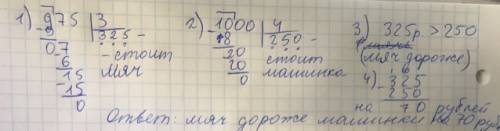 1) 975 | 3
- 9 325 -
07 - стоит
- 6 мяч
15
- 15
0
2) - 1000 | 4
8 250 -
20 стоит
20 машинка
0
3) 325р. > 250
(мяч дороже)
4) - 325
250
на 70 рублей
Ответ: мяч дороже машинки на 70 руб